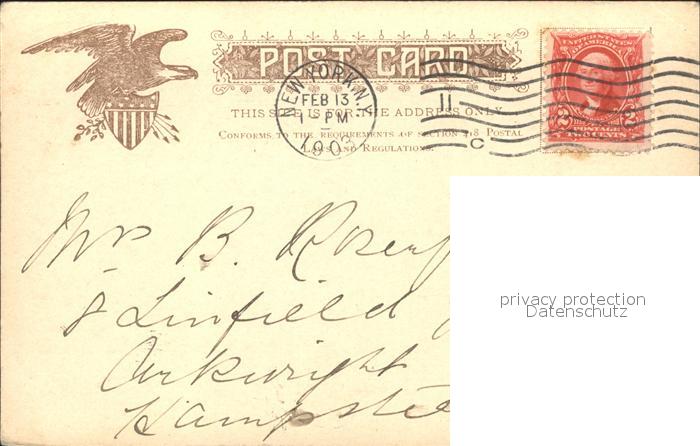 POST CARD
NEW YORK, N.Y.
FEB 13
1 PM
190
11
C
UNITED STATES
OF AMERICA
2 2
POSTAGE
TWO CENTS
THIS SIDE IS FOR THE ADDRESS ONLY
CONFORMS TO THE REQUIREMENTS OF SECTION 418 POSTAL
LAWS AND REGULATIONS.
Mr B. Rosenf
8 Linfield
Arkwright
Hampste
privacy protection
Datenschutz